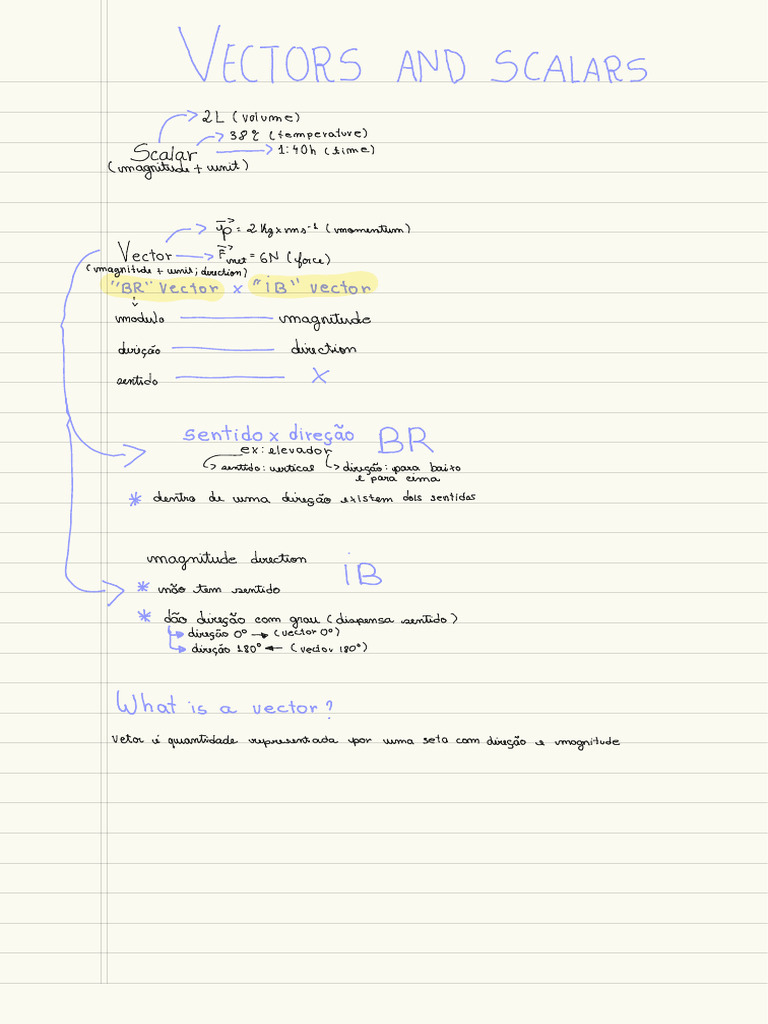 VECTORS AND SCALARS
2L (volume)
38°C (temperature)
Scalar
1:40h (time)
(magnitude + unit)
p⃗ = 2 Kg x ms⁻¹ (momentum)
Vector
F⃗net = 6N (force)
(magnitude + unit; direction)
"BR" vector x "iB" vector
modulo magnitude
direção direction
sentido X
sentido x direção BR
ex: elevador
sentido: vertical direção: para baixo
e para cima
* dentro de uma direção existem dois sentidos
magnitude direction
iB
* não tem sentido
* dão direção com grau (dispensa sentido)
direção 0° → (vector 0°)
direção 180° ← (vector 180°)
What is a vector?
Vetor é quantidade representada por uma seta com direção e magnitude